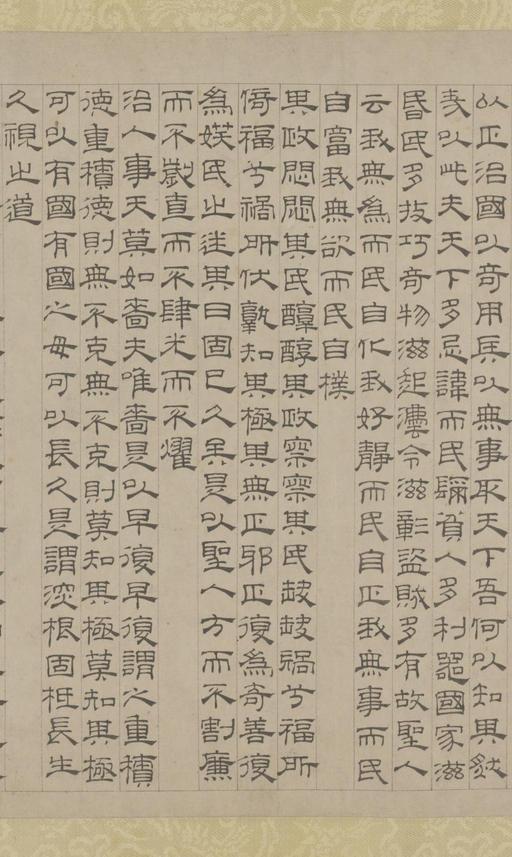 以正治國以奇用兵以無事取天下吾何以知其然
哉以此夫天下多忌諱而民彌貧人多利器國家滋
昏民多技巧奇物滋起灋令滋彰盜賊多有故聖人
云我無為而民自化我好靜而民自正我無事而民
自富我無欲而民自樸
其政悶悶其民醇醇其政察察其民缺缺禍兮福所
倚福兮禍所伏孰知其極其無正邪正復為奇善復
為妖民之迷其日固已久矣是以聖人方而不割廉
而不劌直而不肆光而不燿
治人事天莫如嗇夫唯嗇是以早復早復謂之重積
德重積德則無不克無不克則莫知其極莫知其極
可以有國有國之母可以長久是謂深根固柢長生
久視之道